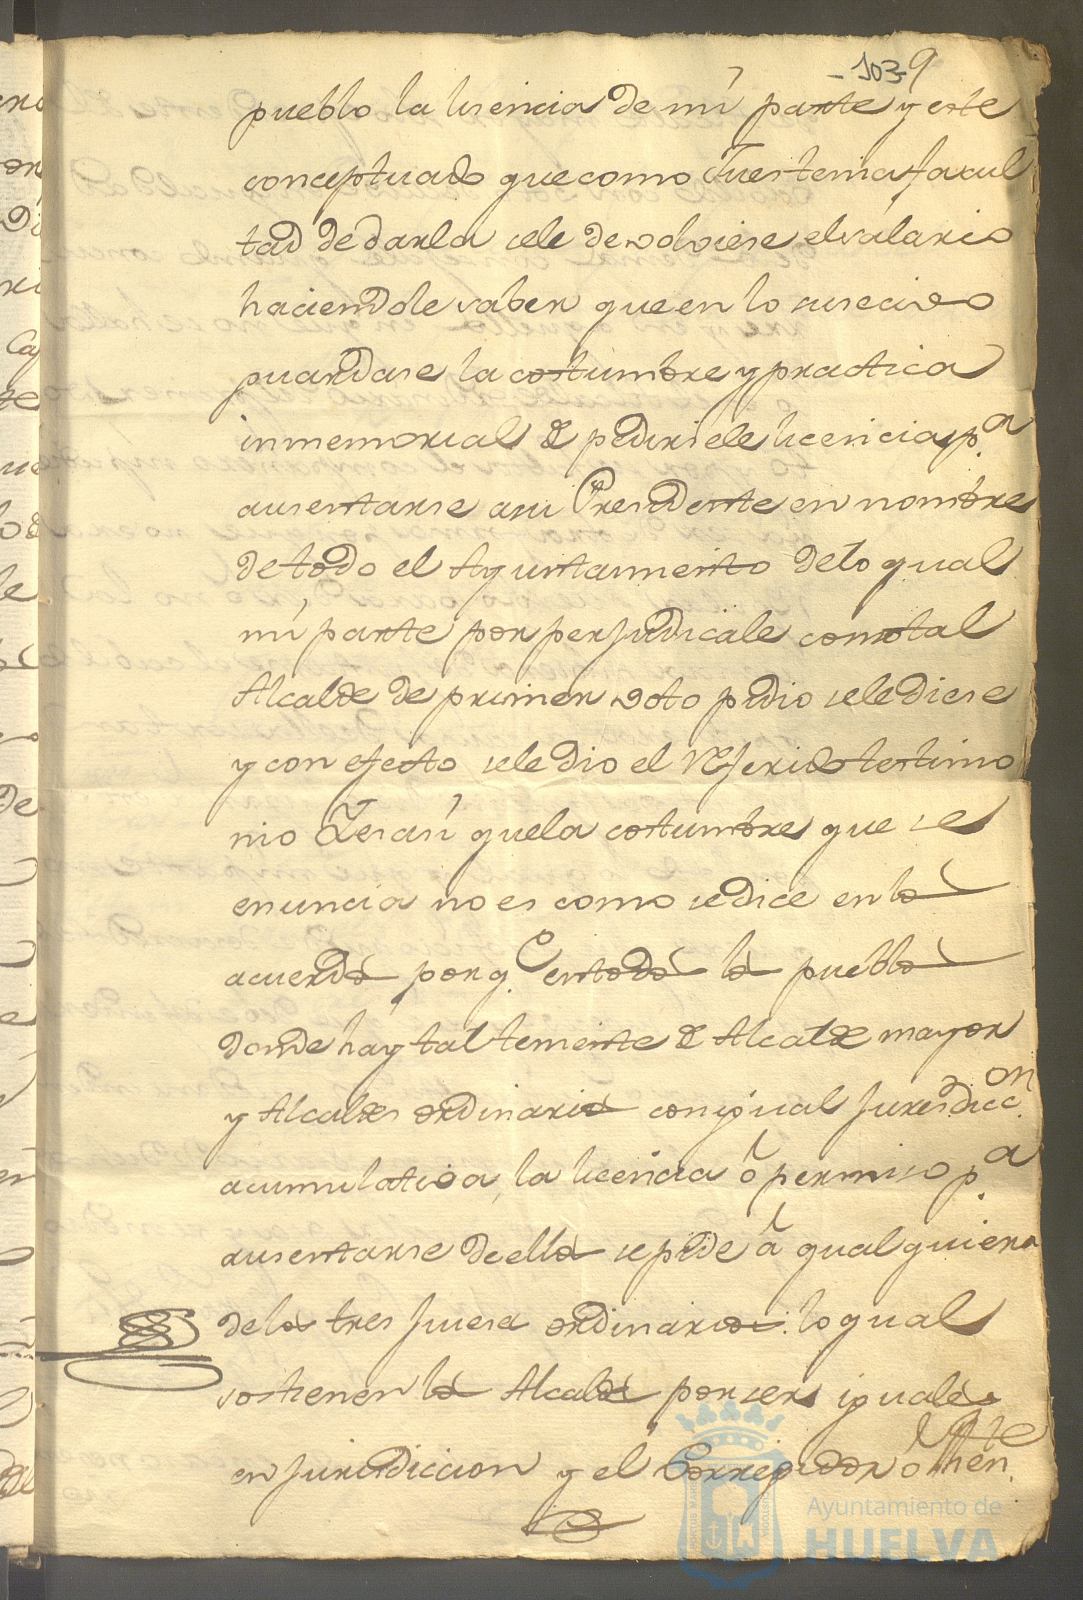 - 103 - 9
pueblo la lisencia de mi parte y este
conceptuado que como Jues tenia facul
tad de darla sele devolviese el salario
haciendole saber que en lo susecivo
guardase la costumbre y practica
inmemorial de pedirsele licencia pa
ausentarse a su Presidente en nombre
de todo el Ayuntamiento de lo qual
mi parte por perjudicale como tal
Alcalde de primer voto pidio sele diese
y con efecto sele dio el referido testimo
nio Y es asi que la costumbre que se
enuncia no es como se dice en los
acuerdos porqe en todos los pueblos
donde hay tal teniente de Alcalde mayor
y Alcaldes ordinarios con igual Juresdiccon
acumulativa, la licencia ô permiso pa
ausentarse de ellos se pide â qualquiera
de los tres Jueses ordinarios: lo qual
sostienen los Alcaldes por ser iguales
en Jurisdiccion y el Corregidor o Then.te
Ayuntamiento de
HUELVA